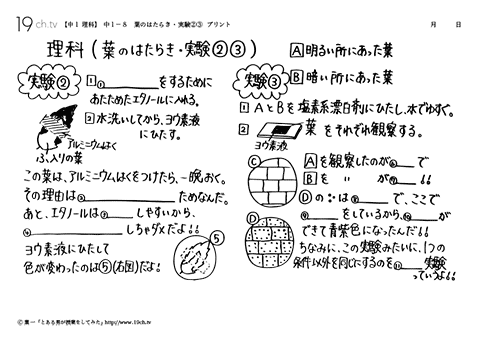 19ch.tv 【中1 理科】 中1-8 葉のはたらき・実験②③ プリント 月 日
理科(葉のはたらき・実験②③)
実験②
1 ①をするために
あたためたエタノールに入れる。
2 水洗いしてから、ヨウ素液
にひたす。
アルミニウムはく
ふ入りの葉
この葉は、アルミニウムはくをつけたら、一晩おく。
その理由は② ためなんだ。
あと、エタノールは③ しやすいから、
④ しちゃダメだよ!!
ヨウ素液にひたして
色が変わったのは⑤(右図)だよ!
⑤
A 明るい所にあった葉
B 暗い所にあった葉
実験③
1 AとBを塩素系漂白剤にひたし、水でゆすぐ。
2 葉をそれぞれ観察する。
ヨウ素液
C
A を観察したのが⑥ で
B を 〃 が⑦ !!
D の は⑧ で、ここで
⑨ をしているから、⑩ が
D
できて青紫色になったんだ!!
ちなみに、この実験みたいに、1つの
条件以外を同じにするのを⑪ 実験
っていうよ!!
©葉一「とある男が授業をしてみた」http://www.19ch.tv